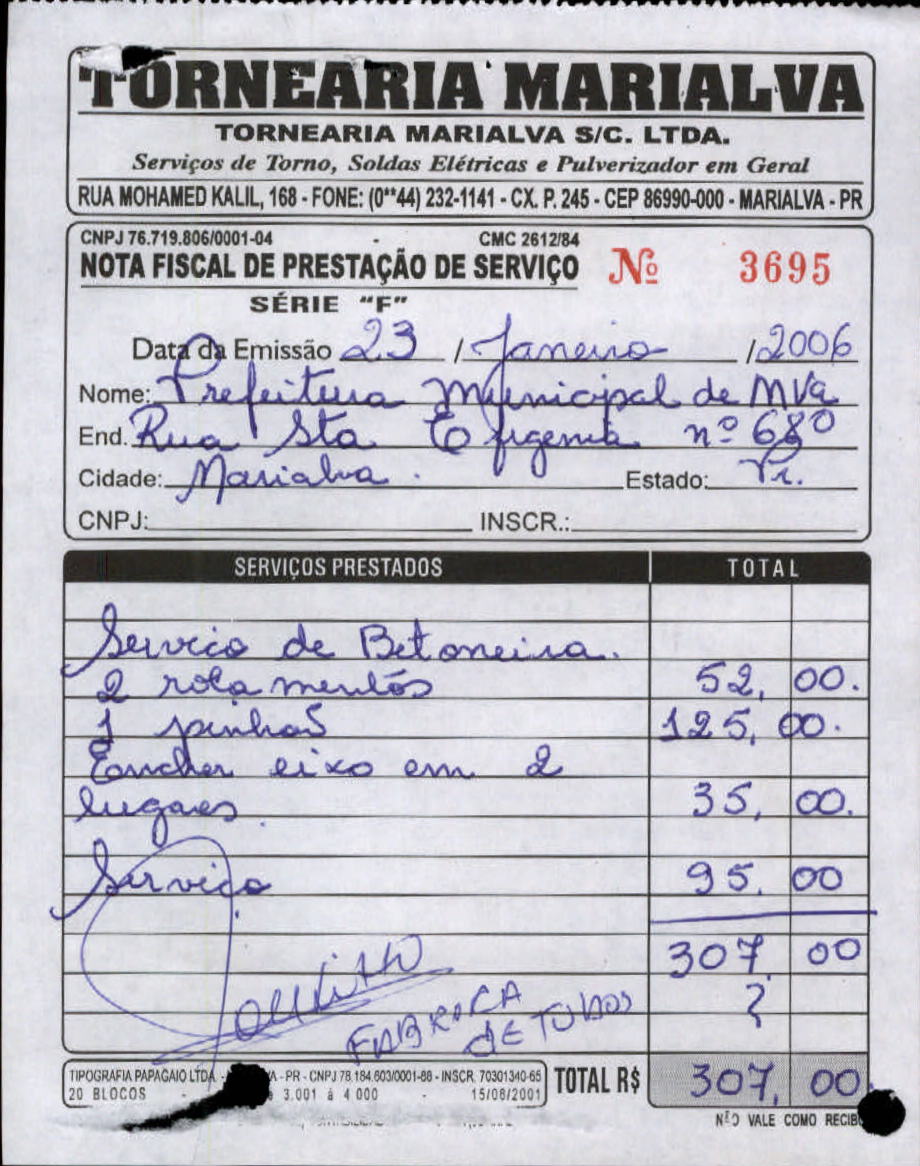 TORNEARIA MARIALVA
TORNEARIA MARIALVA S/C. LTDA.
Serviços de Torno, Soldas Elétricas e Pulverizador em Geral
RUA MOHAMED KALIL, 168 - FONE: (0**44) 232-1141 - CX. P. 245 - CEP 86990-000 - MARIALVA - PR
CNPJ 76.719.806/0001-04 CMC 2612/84
NOTA FISCAL DE PRESTAÇÃO DE SERVIÇO Nº 3695
SÉRIE "F"
Data da Emissão 23 / Janeiro /2006
Nome: Prefeitura Municipal de Mva
End. Rua Sta Efigenia nº 680
Cidade: Marialva Estado: Pr.
CNPJ: INSCR.:
SERVIÇOS PRESTADOS TOTAL
Servico de Betoneira.
2 rolamentos 52,00.
1 pinhão 125,00.
Encher eixo em 2
lugares. 35,00.
Serviço 95,00
307,00
?
FABRICA
DE TUBOS
TIPOGRAFIA PAPAGAIO LTDA. - PR - CNPJ 78.184.603/0001-88 - INSCR. 70301340-65
20 BLOCOS - 3.001 à 4 000 - 15/08/2001
TOTAL R$ 307,00
NÃO VALE COMO RECIBO